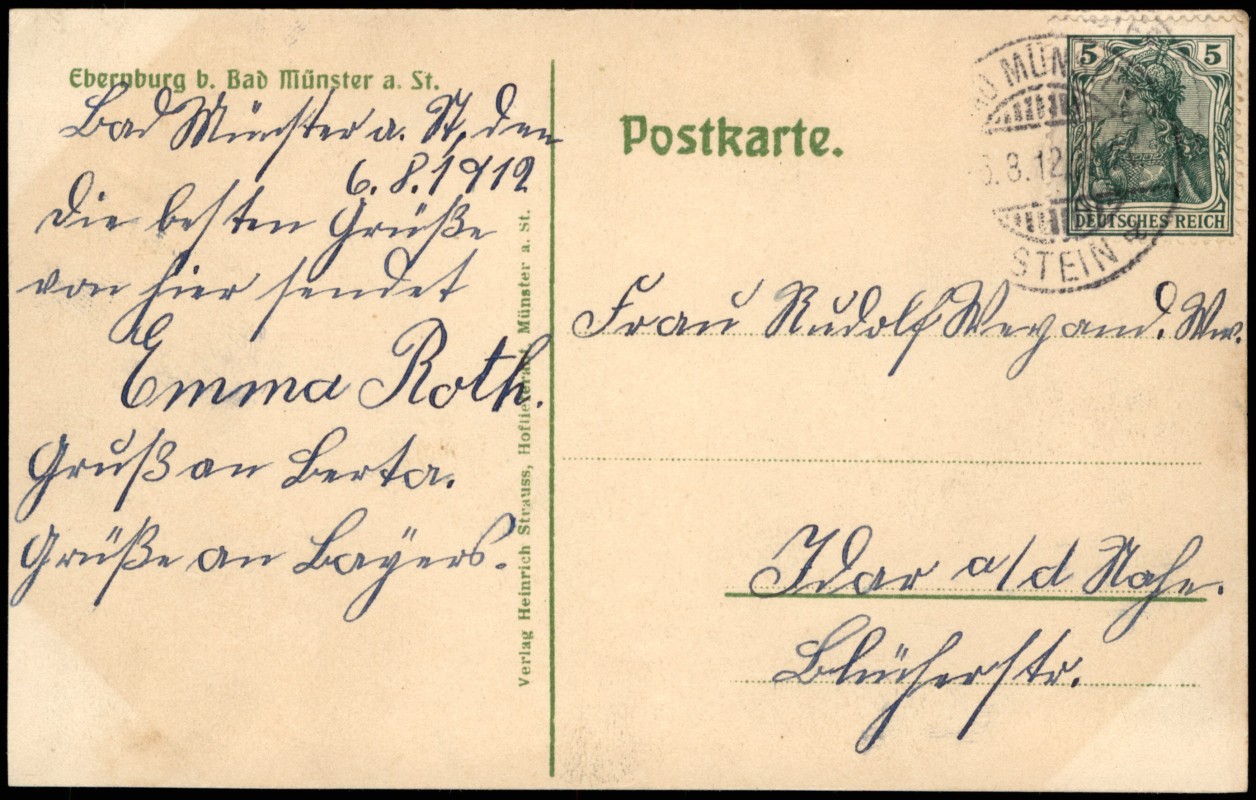 Ebernburg b. Bad Münster a. St.
Bad Münster a. St., den
6.8.1912
Die besten Grüße
von hier sendet
Emma Roth.
Gruß an Berta.
Grüße an Bayers.
Verlag Heinrich Strauss, Hoflieferant, Münster a. St.
Postkarte.
BAD MÜNSTER
6.8.12.
STEIN
5 5
DEUTSCHES REICH
Frau Rudolf Weyand. Ww.
Idar a/d Nahe.
Blücherstr.